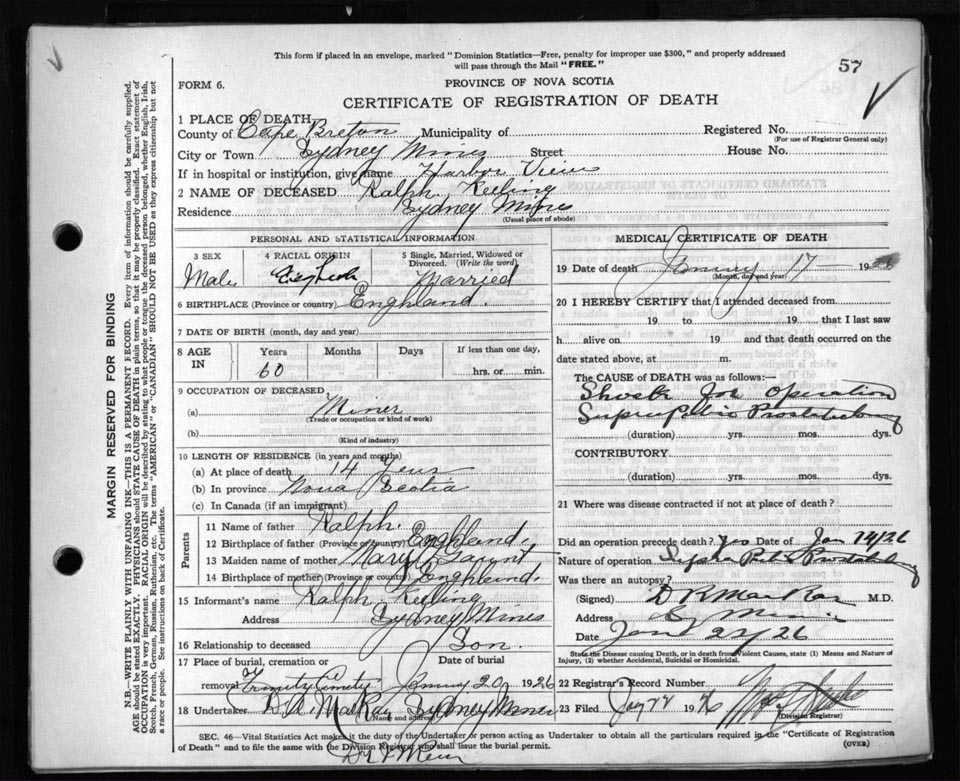 This form if placed in an envelope, marked "Dominion Statistics—Free, penalty for improper use $300," and properly addressed
will pass through the Mail "FREE."
57
FORM 6.
PROVINCE OF NOVA SCOTIA
CERTIFICATE OF REGISTRATION OF DEATH
1 PLACE OF DEATH
County of Cape Breton Municipality of Registered No.
(For use of Registrar General only)
City or Town Sydney Mines Street House No.
If in hospital or institution, give name Harbor View
2 NAME OF DECEASED Ralph Keeling
Residence Sydney Mines
(Usual place of abode)
PERSONAL AND STATISTICAL INFORMATION
3 SEX Male
4 RACIAL ORIGIN
5 Single, Married, Widowed or Divorced. (Write the word) Married
6 BIRTHPLACE (Province or country) Enghland.
7 DATE OF BIRTH (month, day and year)
8 AGE IN Years Months Days If less than one day,
60 hrs. or min.
9 OCCUPATION OF DECEASED
(a) Miner
(Trade or occupation or kind of work)
(b)
(Kind of industry)
10 LENGTH OF RESIDENCE (in years and months)
(a) At place of death 14
(b) In province Nova Scotia
(c) In Canada (if an immigrant)
Parents
11 Name of father Ralph.
12 Birthplace of father (Province or country) Enghland.
13 Maiden name of mother Mary
14 Birthplace of mother (Province or country) Enghland.
15 Informant's name Ralph Keeling
Address Sydney Mines
16 Relationship to deceased Son.
17 Place of burial, cremation or Date of burial
removal Trinity 20 1926
18 Undertaker D.A. MacKay Sydney Mines
(Name and address)
MEDICAL CERTIFICATE OF DEATH
19 Date of death 17 19
(Month, day and year)
20 I HEREBY CERTIFY that I attended deceased from
19 to 19 that I last saw
h alive on 19 and that death occurred on the
date stated above, at m.
The CAUSE of DEATH was as follows:—
Shock Operation
(duration) yrs. mos. dys.
CONTRIBUTORY
(duration) yrs. mos. dys.
21 Where was disease contracted if not at place of death?
Did an operation precede death? Yes Date of Jan 14/26
Nature of operation
Was there an autopsy?
(Signed) M.D.
Address
Date Jan 26
State the Disease causing Death, or in death from Violent Causes, state (1) Means and Nature of
Injury, (2) whether Accidental, Suicidal or Homicidal.
22 Registrar's Record Number
23 Filed 19
(Division Registrar)
SEC. 46—Vital Statistics Act makes it the duty of the Undertaker or person acting as Undertaker to obtain all the particulars required in the "Certificate of Registration
of Death" and to file the same with the Division Registrar who shall issue the burial permit.
(OVER)
MARGIN RESERVED FOR BINDING
N.B.—WRITE PLAINLY WITH UNFADING INK—THIS IS A PERMANENT RECORD. Every item of information should be carefully supplied.
AGE should be stated EXACTLY. PHYSICIANS should STATE CAUSE OF DEATH in plain terms, so that it may be properly classified. Exact statement of
OCCUPATION is very important. RACIAL ORIGIN will be described by stating to what people or tongue the deceased person belonged, whether English, Irish,
Scotch, French, German, Russian, Ruthenian, etc. The terms "AMERICAN" or "CANADIAN" SHOULD NOT BE USED as they express citizenship but not
a race or people. See instructions on back of Certificate.